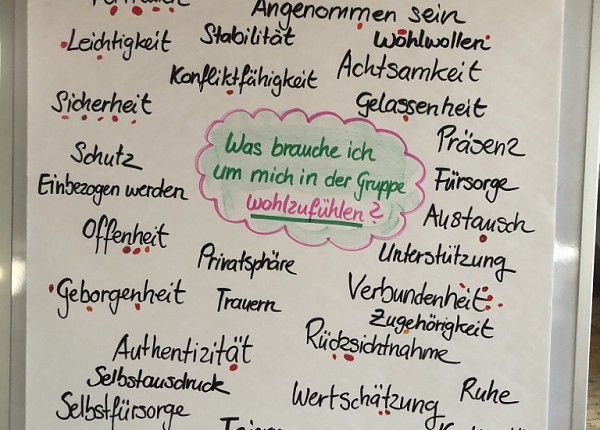 Angenommen sein
Leichtigkeit
Stabilität
Wohlwollen
Konfliktfähigkeit
Achtsamkeit
Sicherheit
Gelassenheit
Was brauche ich
um mich in der Gruppe
wohlzufühlen?
Präsenz
Schutz
Einbezogen werden
Fürsorge
Austausch
Offenheit
Privatsphäre
Unterstützung
Geborgenheit
Trauern
Verbundenheit
Zugehörigkeit
Authentizität
Rücksichtnahme
Selbstausdruck
Wertschätzung
Ruhe
Selbstfürsorge